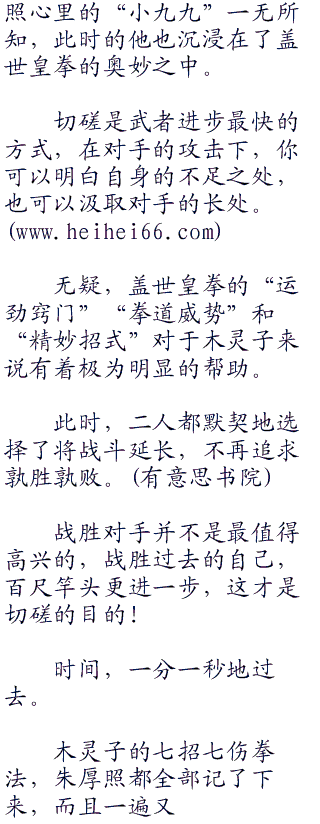 照心里的“小九九”一无所
知，此时的他也沉浸在了盖
世皇拳的奥妙之中。
切磋是武者进步最快的
方式，在对手的攻击下，你
可以明白自身的不足之处，
也可以汲取对手的长处。
(www.heihei66.com)
无疑，盖世皇拳的“运
劲窍门”“拳道威势”和
“精妙招式”对于木灵子来
说有着极为明显的帮助。
此时，二人都默契地选
择了将战斗延长，不再追求
孰胜孰败。(有意思书院)
战胜对手并不是最值得
高兴的，战胜过去的自己，
百尺竿头更进一步，这才是
切磋的目的!
时间，一分一秒地过
去。
木灵子的七招七伤拳
法，朱厚照都全部记了下
来，而且一遍又